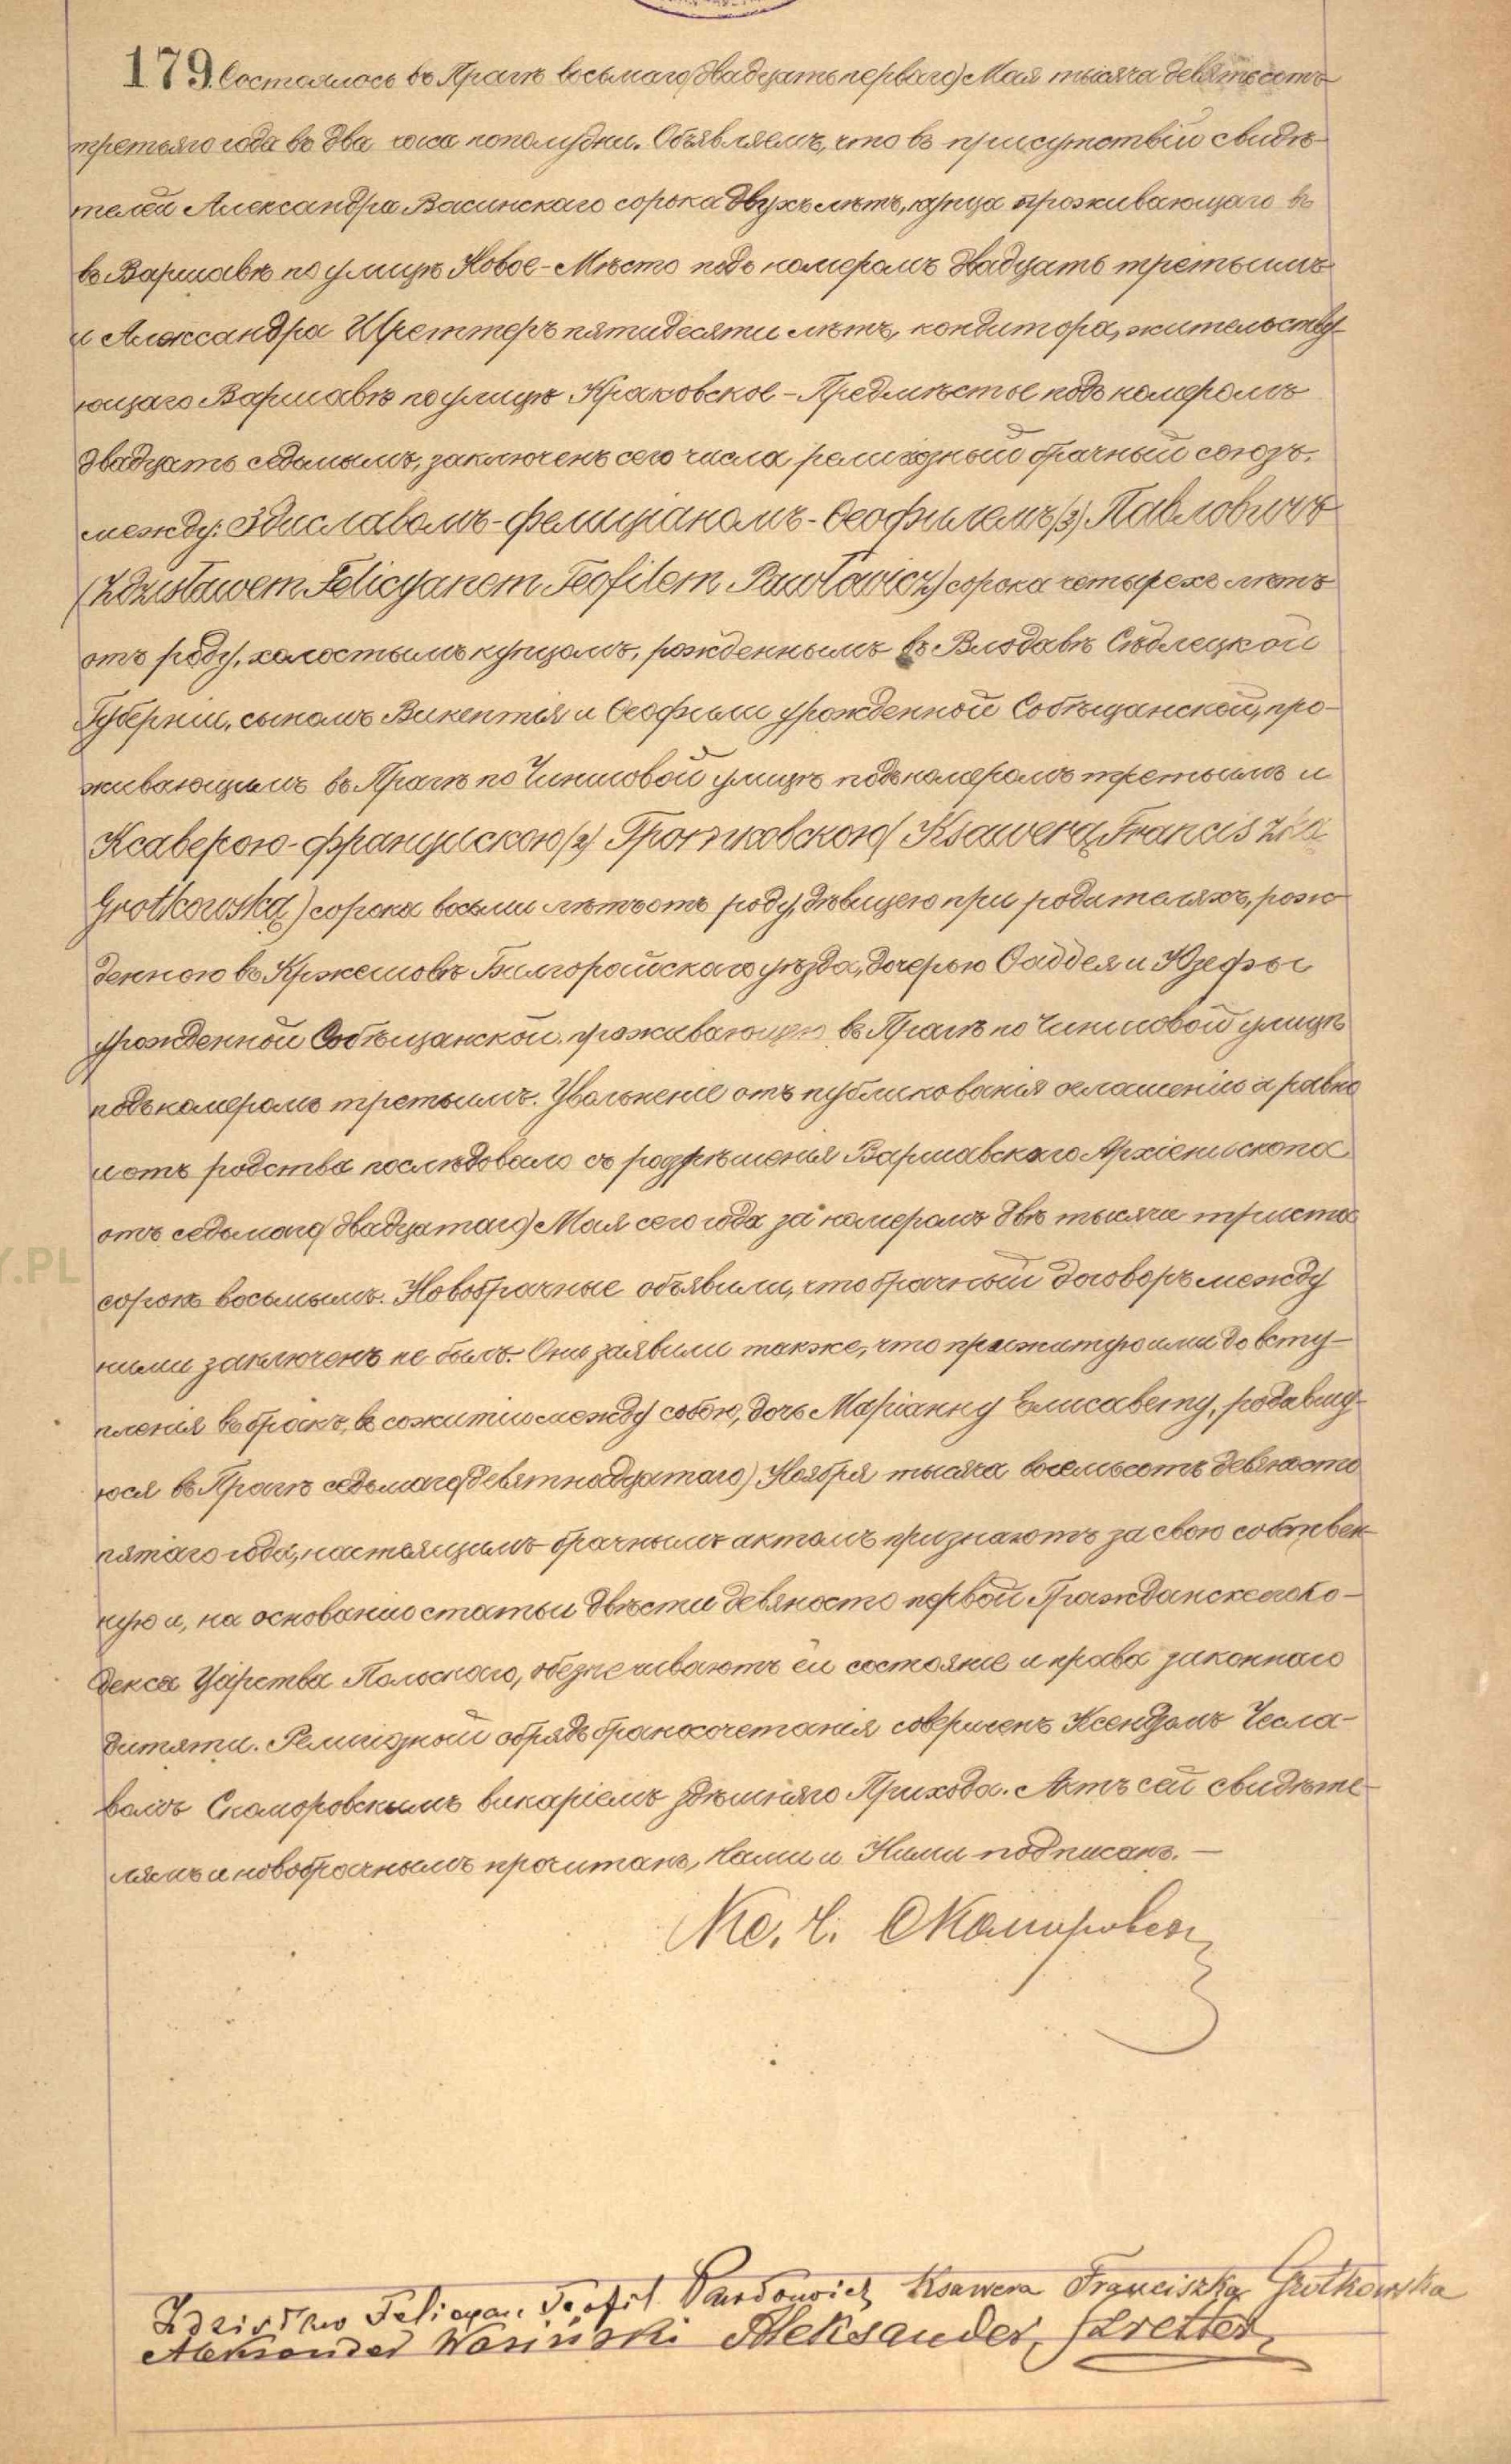 179. Состоялось въ Прагѣ восьмаго (двадцать перваго) Мая тысяча девятьсотъ
третьяго года въ два часа пополудни. Объявляемъ, что въ присутствіи свидѣ-
телей Александра Васинскаго сорока двухъ лѣтъ, купца проживающаго въ
въ Варшавѣ по улицѣ Новое-Мѣсто подъ номеромъ двадцать третьимъ
и Александра Шреттеръ пятидесяти лѣтъ, кондитора, жительству-
ющаго Варшавѣ по улицѣ Краковское-Предмѣстье подъ номеромъ
двадцать седьмымъ, заключенъ сего числа религіозный брачный союзъ.
между: Здиславомъ-Фелиціаномъ-Ѳеофилемъ (3) Павловичъ
(Zdzisławem Felicyanem Teofilem Pawłowicz) сорока четырехъ лѣтъ
отъ роду, холостымъ купцомъ, рожденнымъ въ Влодавѣ Сѣдлецкой
Губерніи, сыномъ Викентія и Ѳеофили урожденной Собѣщанской, про-
живающимъ въ Прагѣ по Чиншовой улицѣ подъ номеромъ третьимъ и
Ксаверою-Францискою (2) Гротковскою (Ksawerą Franciszką
Grotkowską) сорока восьми лѣтъ отъ роду, дѣвицею при родителяхъ, рож-
денною въ Кржешовѣ Билгорайскаго уѣзда, дочерью Ѳаддея и Юзефы
урожденной Собѣщанской, проживающею въ Прагѣ по Чиншовой улицѣ
подъ номеромъ третьимъ. Увольненіе отъ публикованія оглашеній а равно
и отъ родства послѣдовало съ разрѣшенія Варшавскаго Архіепископа
отъ седьмаго (двадцатаго) Мая сего года за номеромъ двѣ тысячи триста
сорокъ восьмымъ. Новобрачные объявили, что брачный договоръ между
ними заключенъ не былъ. Они заявили также, что прижитую ими до всту-
пленія въ бракъ, въ сожитіи между собою, дочь Маріанну Елисавету, родившу-
юся въ Прагѣ седьмаго (девятнадцатаго) Ноября тысяча восемьсотъ девяносто
пятаго года, настоящимъ брачнымъ актомъ признаютъ за свою собствен-
ную и, на основаніи статьи двѣсти девяносто первой Гражданскаго Ко-
декса Царства Польскаго, обезпечиваютъ ей состояніе и права законнаго
дитяти. Религіозный обрядъ бракосочетанія совершенъ Ксендзомъ Чесла-
вомъ Скомаровскимъ викаріемъ здѣшняго Прихода. Актъ сей свидѣте-
лямъ и новобрачнымъ прочитанъ, Нами и Ними подписанъ. —
Кс. Ч. Скомаровскі
Zdzisław Felicyan Teofil Pawłowicz Ksawera Franciszka Grotkowska
Aleksander Wasiński Aleksander Szretter